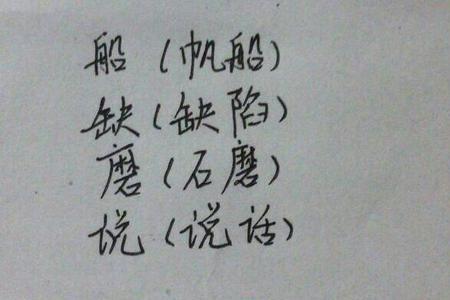 船（帆船）
缺（缺陷）
磨（石磨）
说（说话）